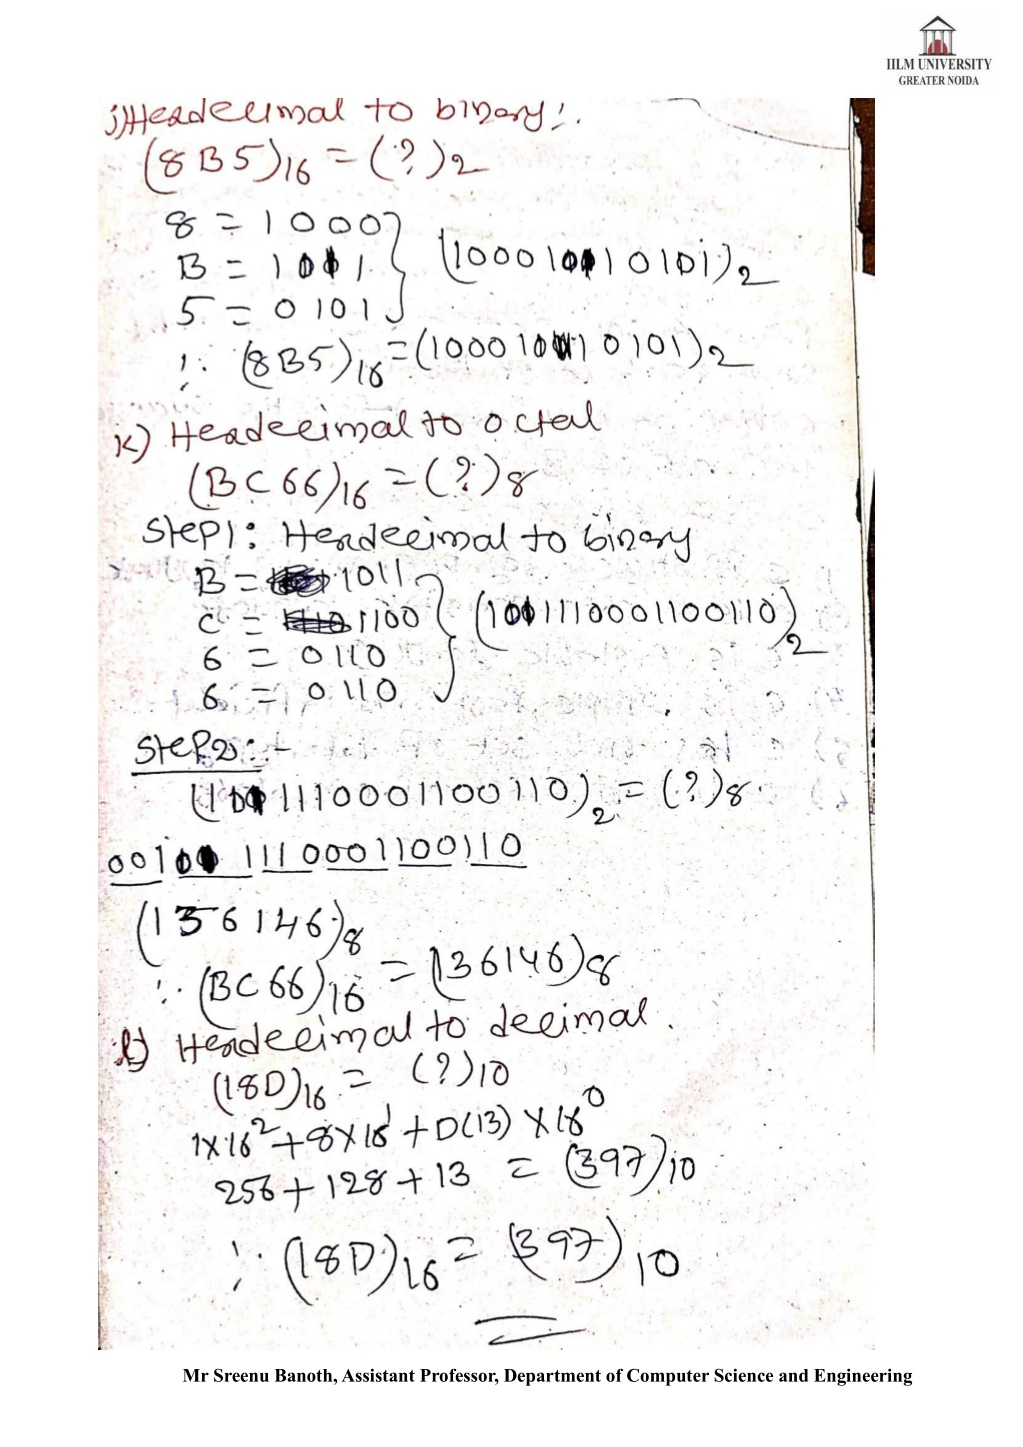 IILM UNIVERSITY
GREATER NOIDA
j) Hexadecimal to binary:.
(8B5)16 = (?)2
8 = 1000
B = 1011
5 = 0101
(100010110101)2
∴ (8B5)16 = (100010110101)2
k) Hexadecimal to octal
(BC66)16 = (?)8
Step1: Hexadecimal to binary
B = 1011
C = 1100
6 = 0110
6 = 0110
(1011110001100110)2
Step2:-
(1011110001100110)2 = (?)8
001 011 110 001 100 110
(136146)8
∴ (BC66)16 = (136146)8
l) Hexadecimal to decimal.
(18D)16 = (?)10
1X16² + 8X16¹ + D(13) X16⁰
256 + 128 + 13 = (397)10
∴ (18D)16 = (397)10
Mr Sreenu Banoth, Assistant Professor, Department of Computer Science and Engineering